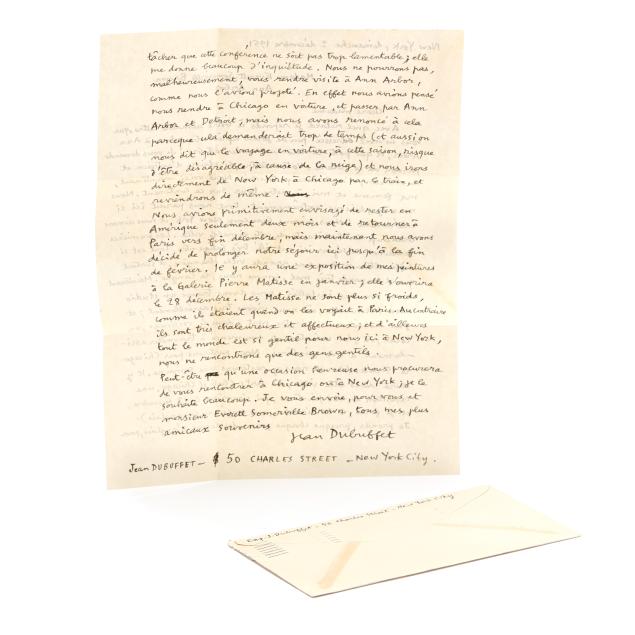 New York, dimanche 2 décembre 1951
tâcher que cette conférence ne soit pas trop lamentable ; elle
me donne beaucoup d'inquiétude. Nous ne pourrons pas,
malheureusement, vous rendre visite à Ann Arbor,
comme nous l'avions projeté. En effet nous avions pensé
nous rendre à Chicago en voiture, et passer par Ann
Arbor et Detroit, mais nous avons renoncé à cela
parceque cela demanderait trop de temps (et aussi on
nous dit que le voyage en voiture, à cette saison, risque
d'être désagréable, à cause de la neige) et nous irons
directement de New York à Chicago par le train, et
reviendrons de même.
Nous avions primitivement envisagé de rester en
Amérique seulement deux mois et de retourner à
Paris vers fin décembre, mais maintenant nous avons
décidé de prolonger notre séjour ici jusqu'à la fin
de février. Il y aura une exposition de mes peintures
à la Galerie Pierre Matisse en janvier ; elle s'ouvrira
le 28 décembre. Les Matisse ne sont plus si froids,
comme ils étaient quand on les voyait à Paris. Au contraire
ils sont très chaleureux et affectueux ; et d'ailleurs
tout le monde est si gentil pour nous ici à New York,
nous ne rencontrons que des gens gentils.
Peut-être qu'une occasion heureuse nous procurera
de vous rencontrer à Chicago ou à New York ; je le
souhaite beaucoup. Je vous envoie, pour vous et
monsieur Everett Somerville Brown, tous mes plus
amicaux souvenirs
Jean Dubuffet
Jean DUBUFFET — 50 CHARLES STREET — New York City.
Exp. J. Dubuffet - 50 Charles Street - New York City